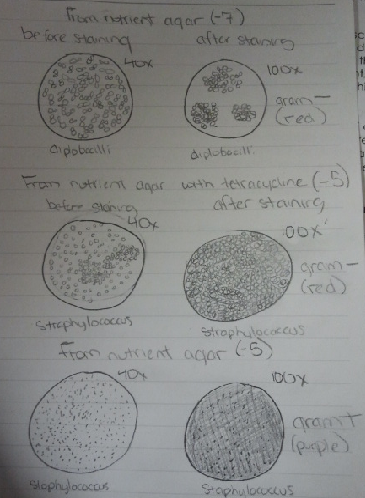 From nutrient agar (-7)
before staining after staining
40x 100x
gram -
(red)
diplobacilli diplobacilli
From nutrient agar with tetracycline (-5)
before staining after staining
40x 100x
gram -
(red)
Straphylococcus Straphylococcus
From nutrient agar (-5)
40x 100x
gram +
(purple)
Staphylococcus Staphylococcus